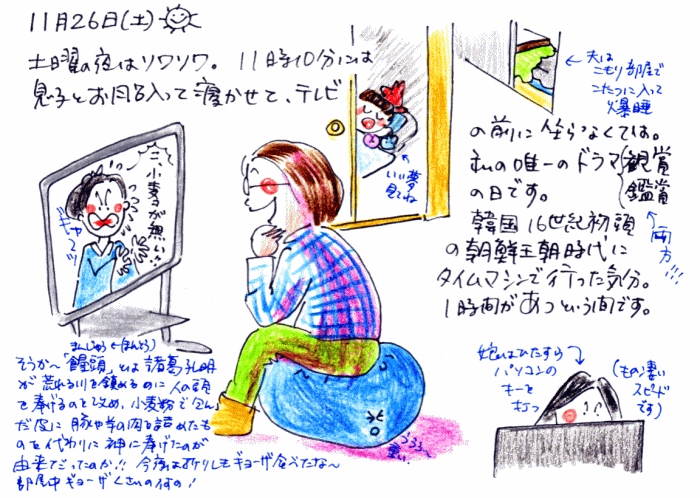 11月26日(土)
土曜の夜はソワソワ。 11時10分には
息子とお風呂入って寝かせて、テレビ
の前に坐らなくては。
私の唯一のドラマ(観賞
鑑賞
の日です。
両方!!!
韓国16世紀初頭
の朝鮮王朝時代に
タイムマシンで行った気分。
1時間があっという間です。
←夫は
こもり部屋で
こたつに入って
爆睡
いい夢
見てね
ニ、小麦が無い!?
ギャーッ
まんじゅう←(ほんとう)
そうか〜「饅頭」とは諸葛孔明
が荒れる川を鎮めるのに人の頭
を捧げるのを改め、小麦粉で包ん
だ皮に豚や羊の肉を詰めたもの
を代わりに神に捧げたのが
由来だったのか!!
ギョーザ食べたな〜
部屋中ギョーザくさいの何の!
うう〜
重い
娘はひたすら
パソコンの
キーを
打つ
(もの凄い
スピード
です)